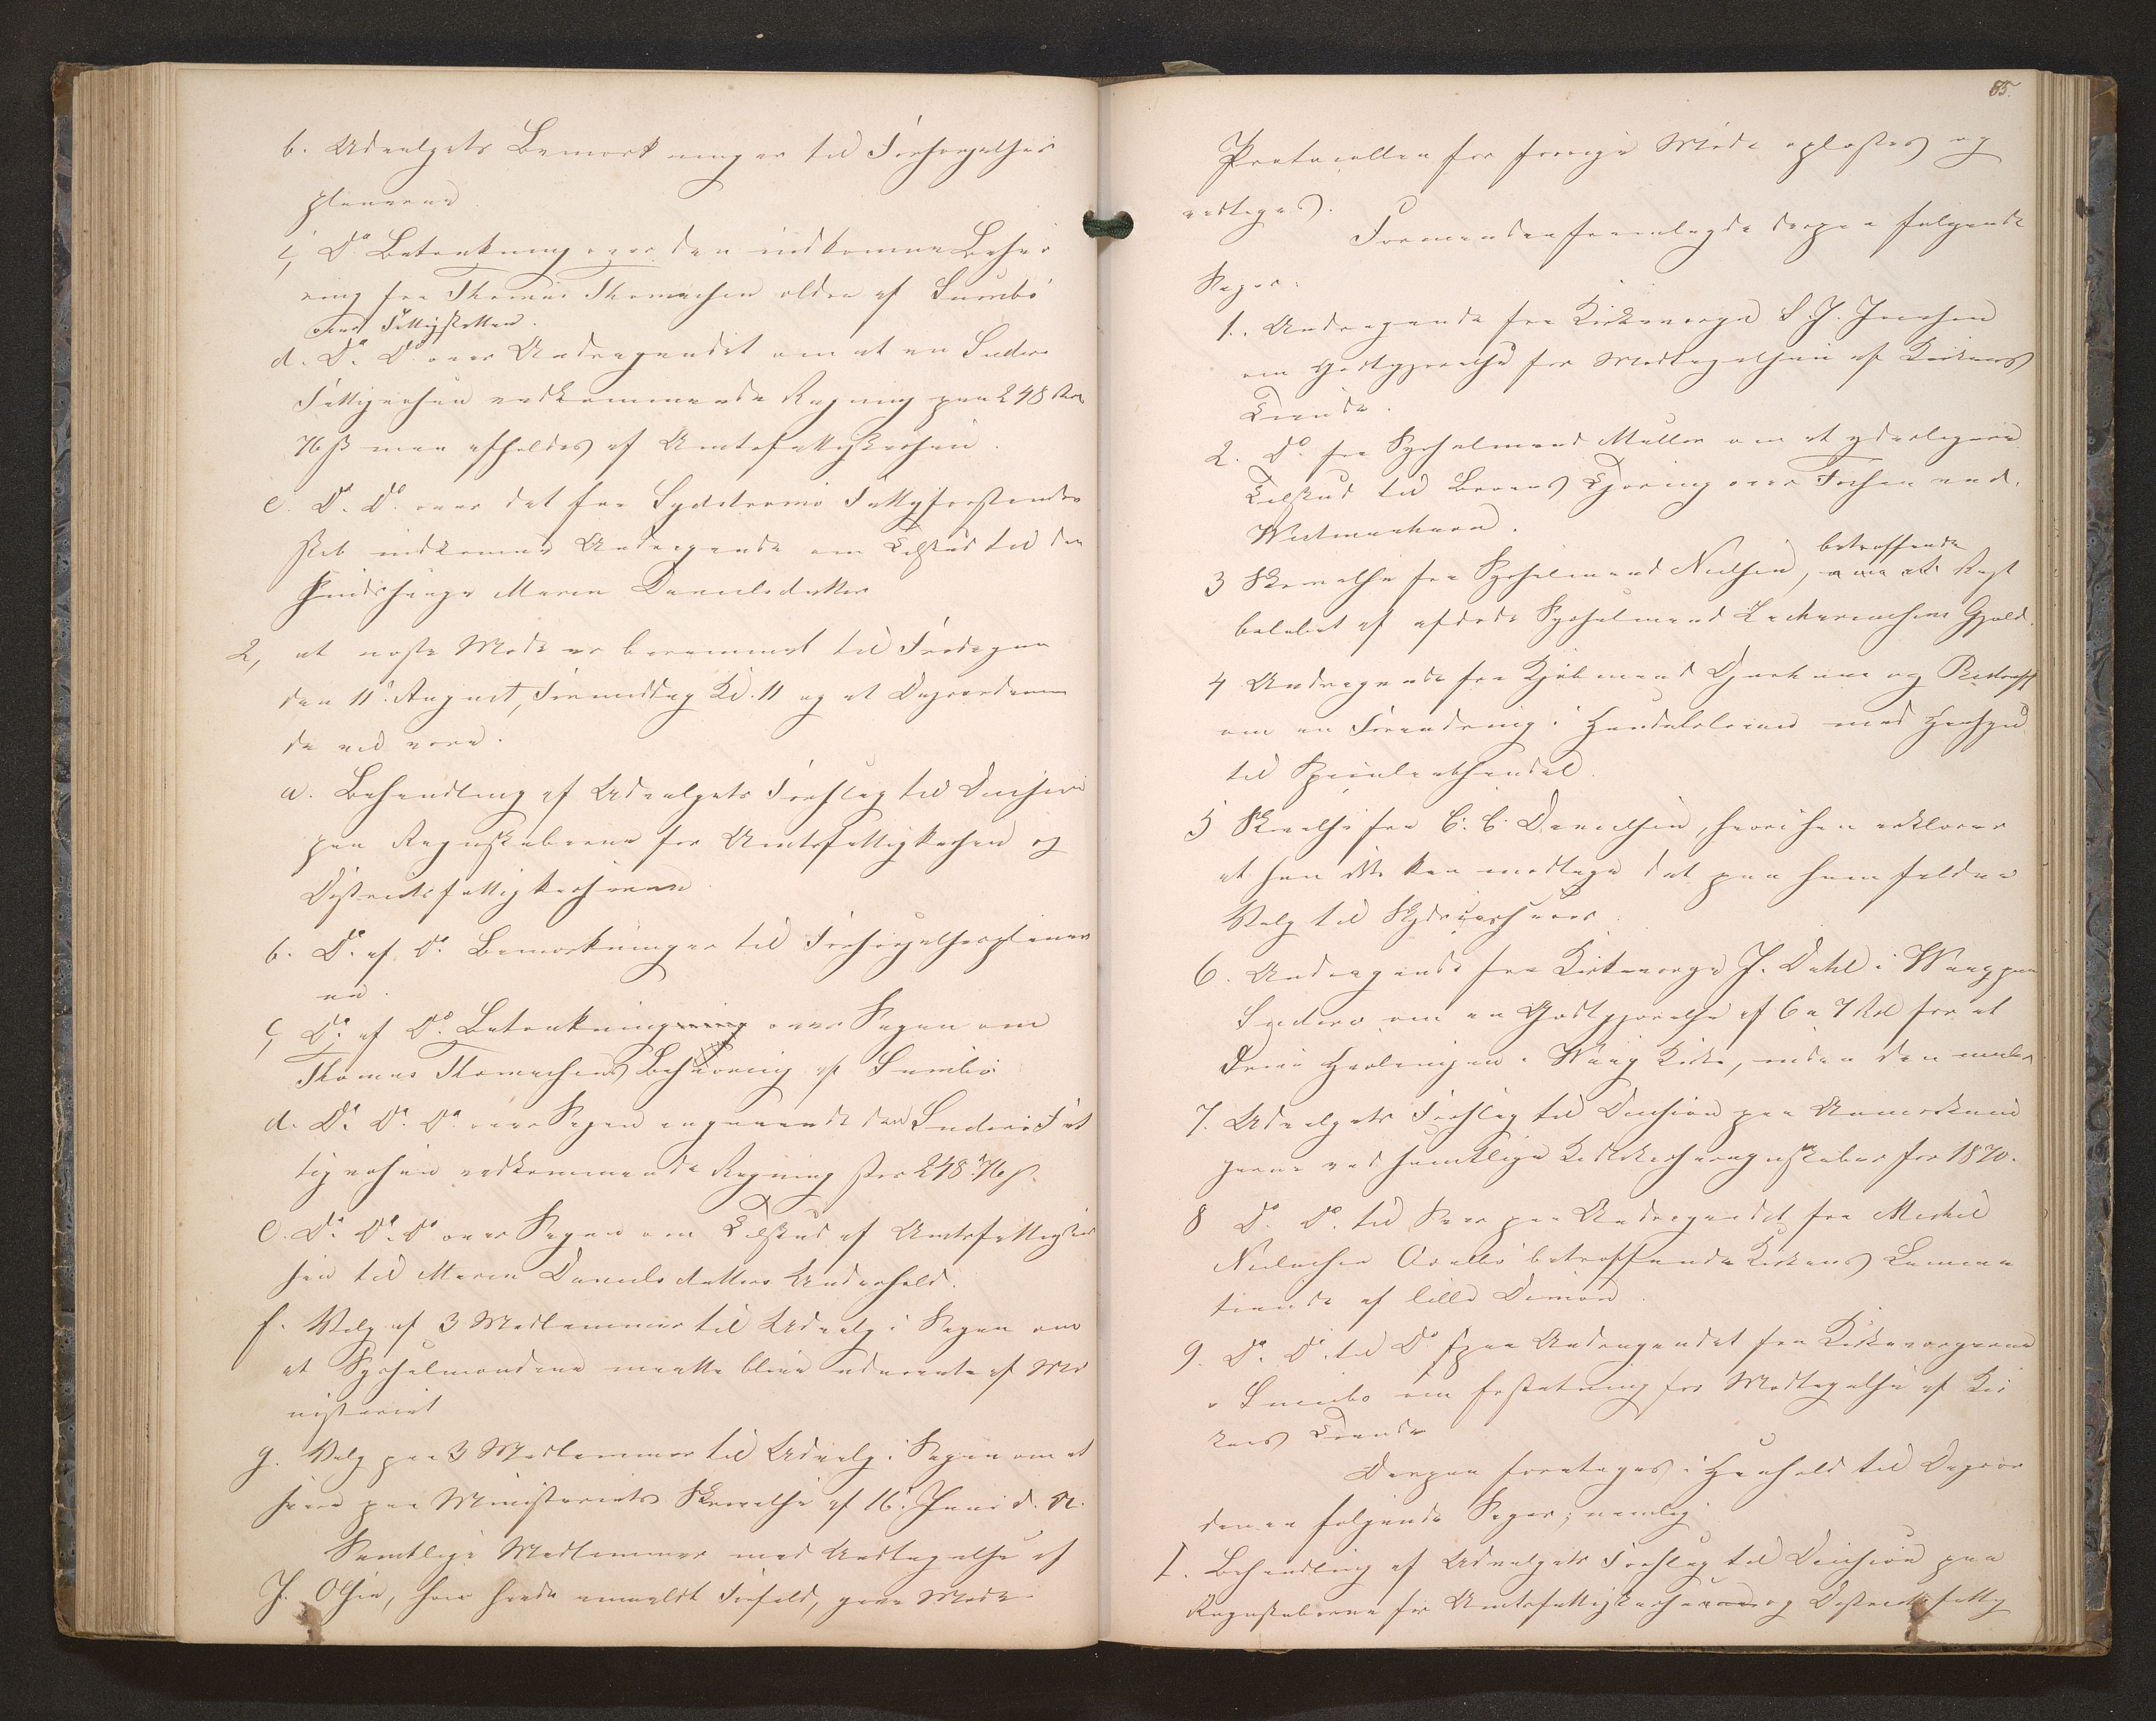 b. Udvalgets Bemærkninger til Forsørgelses
planerne.
c, Do Betænkning over den indkomne Besvæ
ring fra Thomas Thomasen ældre af Sumbø
over Fattigskatten.
d. Do. Do over Andragendet om at en Suderø
Fattigvæsen vedkommende Regning paa 248 Rd
76 ß maa afholdes af Amtsfattigkassen.
e. Do. Do. over det fra Sydstrømø Fattigforstander
skab indkomne Andragende om Tilskud til den
sindssvage Maren Danielsdatter
2, at næste Møde er berammet til Fredagen
den 11te August, Formiddag Kl. 11 og at Dagsordenen
da vil være.
a. Behandling af Udvalgets Forslag til Decision
paa Regnskaberne for Amtsfattigkassen og
Districtsfattigkasserne.
b. Do. af Do. Bemærkninger til Forsørgelsesplaner
ne.
c, Do. af Do. Betænkning over Sagen om
Thomas Thomasens Besværing af Sumbø
d. Do. Do. Do. over Sagen angaaende den Suderø Fat
tigvæsen vedkommende Regning stor 248 Rd 76 ß.
e. Do. Do. Do over Sagen om Tilskud af Amtsfattigkas
sen til Maren Danielsdatters Underhold.
f. Valg af 3 Medlemmer til Udvalg i Sagen om
at Sysselmændene maatte blive udnævnte af Mi
nisteriet
g. Valg paa 3 Medlemmer til Udvalg i Sagen om at
svare paa Ministeriets Skrivelse af 16. Juni d. A.
Samtlige Medlemmer med Undtagelse af
J. Olsen, som havde anmeldt Forfald, gave Møde.
85.
Protocollen for forrige Møde oplæstes og
vedtoges.
Formanden fremlagde derpaa følgende
Sager:
1. Andragende fra Kirkeværge S. J. Joensen
om Godtgjørelse for Modtagelsen af Kirkens
Tiende.
2. Do. fra Sysselmand Müller om et yderligere
Tilskud til Broens Gjøring over Fossen ved
Westmanhavn.
3 Skrivelse fra Sysselmand Nielsen, betræffende Rest
beløbet af afdøde Sysselmand Zachariasens Gjæld.
4 Andragende fra Kjøbmænd Djurhuus og Restorff
om en Forandring i Handelsloven med Hensyn
til Spiritushandel.
5 Skrivelse fra C. C. Danielsen, hvori han erklærer
at han ikke kan modtage det paa ham faldne
Valg til Skydsskaffer.
6. Andragende fra Kirkeværge J. Dahl i Waag paa
Suderø om en Godtgjørelse af 6 a 7 Rd for at
drive Hvælvingen i Waag Kirke, inden den males
7. Udvalgets Forslag til Decision paa Anmærknin
gerne ved samtlige Kirkekasseregnskaber for 1870.
8 Do. Do. til Svar paa Andragendet fra Michel
Nielsen Qvalbø betræffende Kirkens Lamme
tiende af lille Dimon.
9. Do. Do. til Do paa Andragendet fra Kirkeværgerne
i Sumbø om Erstatning for Modtagelse af Kir
kens Tiende
Derpaa foretoges i Henhold til Dagsor
denen følgende Sager; nemlig
I. Behandling af Udvalgets Forslag til Decision paa
Regnskaberne for Amtsfattigkassen og Districtsfattig